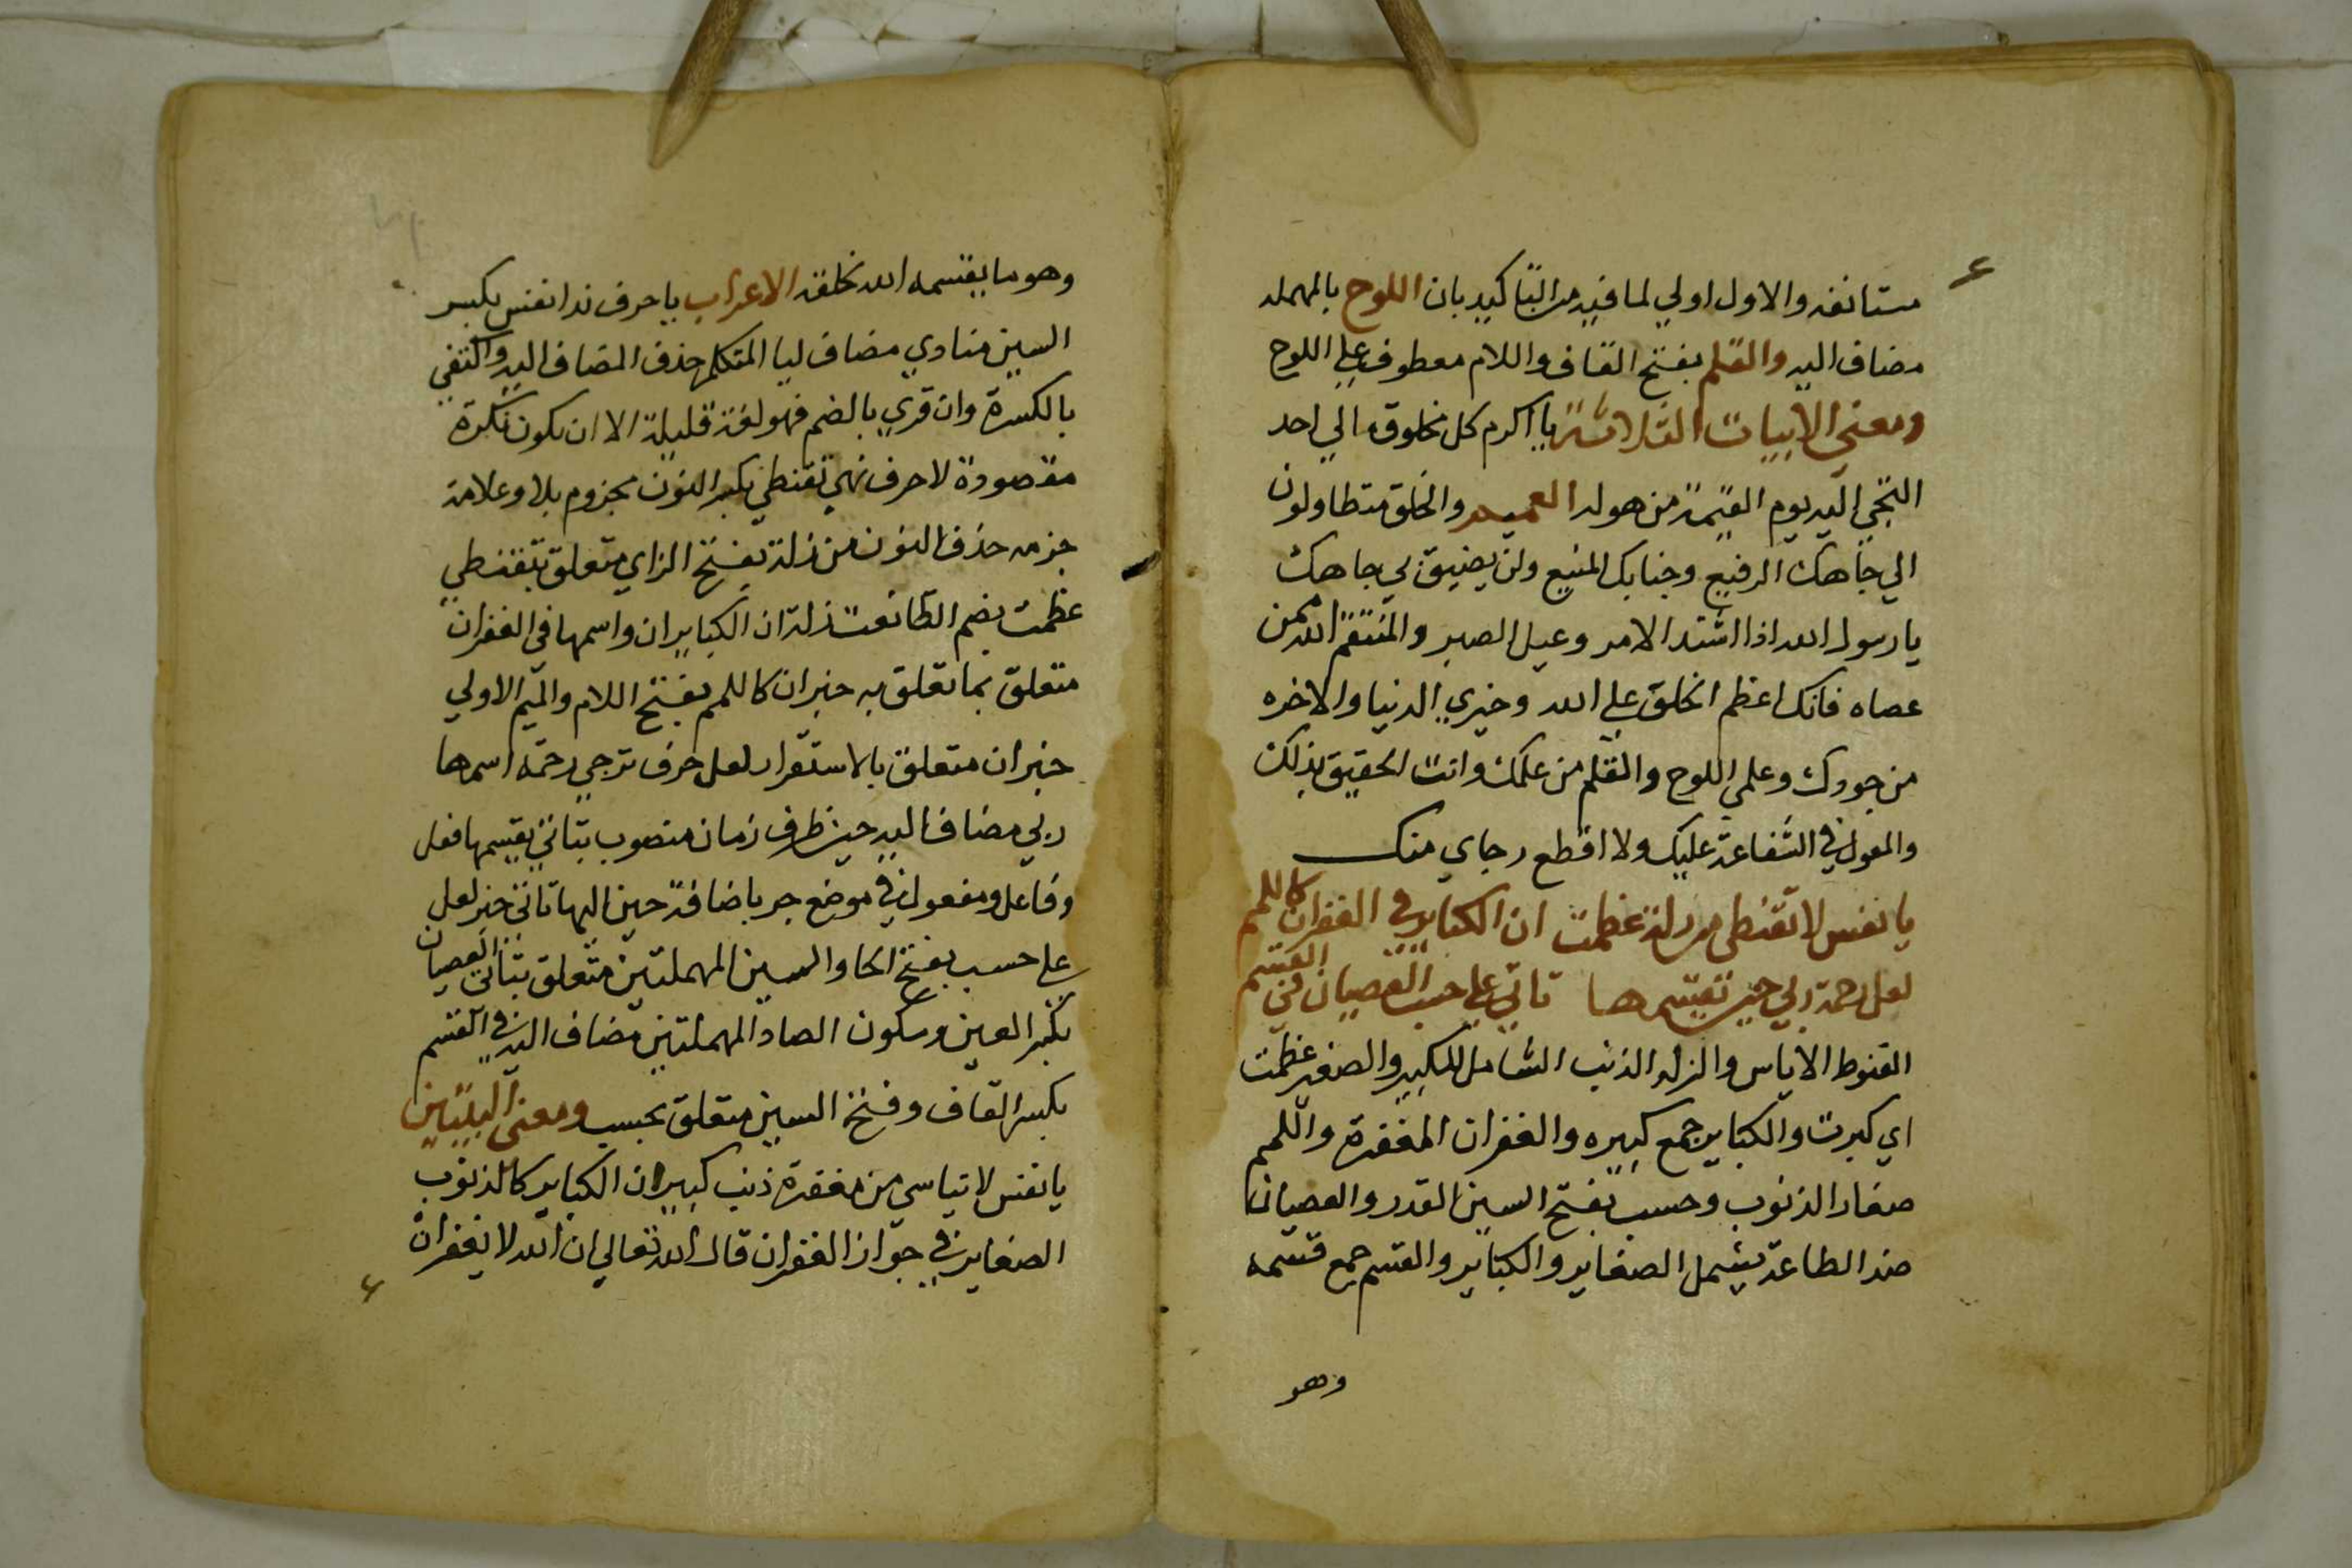 مستانفه والاول اولي لما فيه من التاكيد بان اللوح بالمهمله
مضاف اليه والقلم بفتح القاف واللام معطوف علي اللوح
ومعني الابيات الثلاثة يا اكرم كل مخلوق مالي احد
التجي اليه يوم القيمة من هوله العميم والخلق متطاولون
الي جاهك الرفيع وجنابك المنيع ولن يضيق بي جاهك
يا رسول الله اذا اشتد الامر وعيل الصبر والمنتقم الله ممن
عصاه فانك اعظم الخلق علي الله وخيري الدنيا والاخره
من جودك وعلمي اللوح والقلم من علمك وانت الحقيق بذلك
والمعول في الشفاعة عليك ولا اقطع رجاي منك
يا نفس لا تقنطي من زلة عظمت ان الكباير في الغفران كاللمم
لعل رحمة ربي حين تقسمها تاتي علي حسب العصيان في القسم
القنوط الاياس والزله الذنب الشامل للكبير والصغير عظمت
اي كبرت والكباير جمع كبيره والغفران المغفرة واللمم
صغار الذنوب وحسب بفتح السين القدر والعصيان
ضد الطاعة يشمل الصغاير والكباير والقسم جمع قسمه
وهو
وهو ما يقسمه الله لخلقه الاعراب يا حرف ندا نفس بكسر
السين منادي مضاف ليا المتكلم حذف المضاف اليه واكتفي
بالكسرة وان قري بالضم فهو لغة قليلة الا ان يكون نكرة
مقصودة لا حرف نهي تقنطي بكسر النون مجزوم بلا وعلامة
جزمه حذف النون من زلة بفتح الزاي متعلق بتقنطي
عظمت بضم الظا نعت زلة ان الكباير ان واسمها في الغفران
متعلق بما تعلق به خبر ان كاللمم بفتح اللام والميم الاولي
خبر ان متعلق بالاستقرار لعل حرف ترجي رحمة اسمها
ربي مضاف اليه حين ظرف زمان منصوب بتاتي يقسمها فعل
وفاعل ومفعول في موضع جر باضافة حين اليها تاتي خبر لعل
علي حسب بفتح الحا والسين المهملتين متعلق بتاتي العصيان
بكسر العين وسكون الصاد المهملتين مضاف اليه في القسم
بكسر القاف وفتح السين متعلق بحسب ومعني البيتين
يا نفس لا تياسي من مغفرة ذنب كبير ان الكباير كالذنوب
الصغاير في جواز الغفران قال الله تعالي ان الله لا يغفر ان